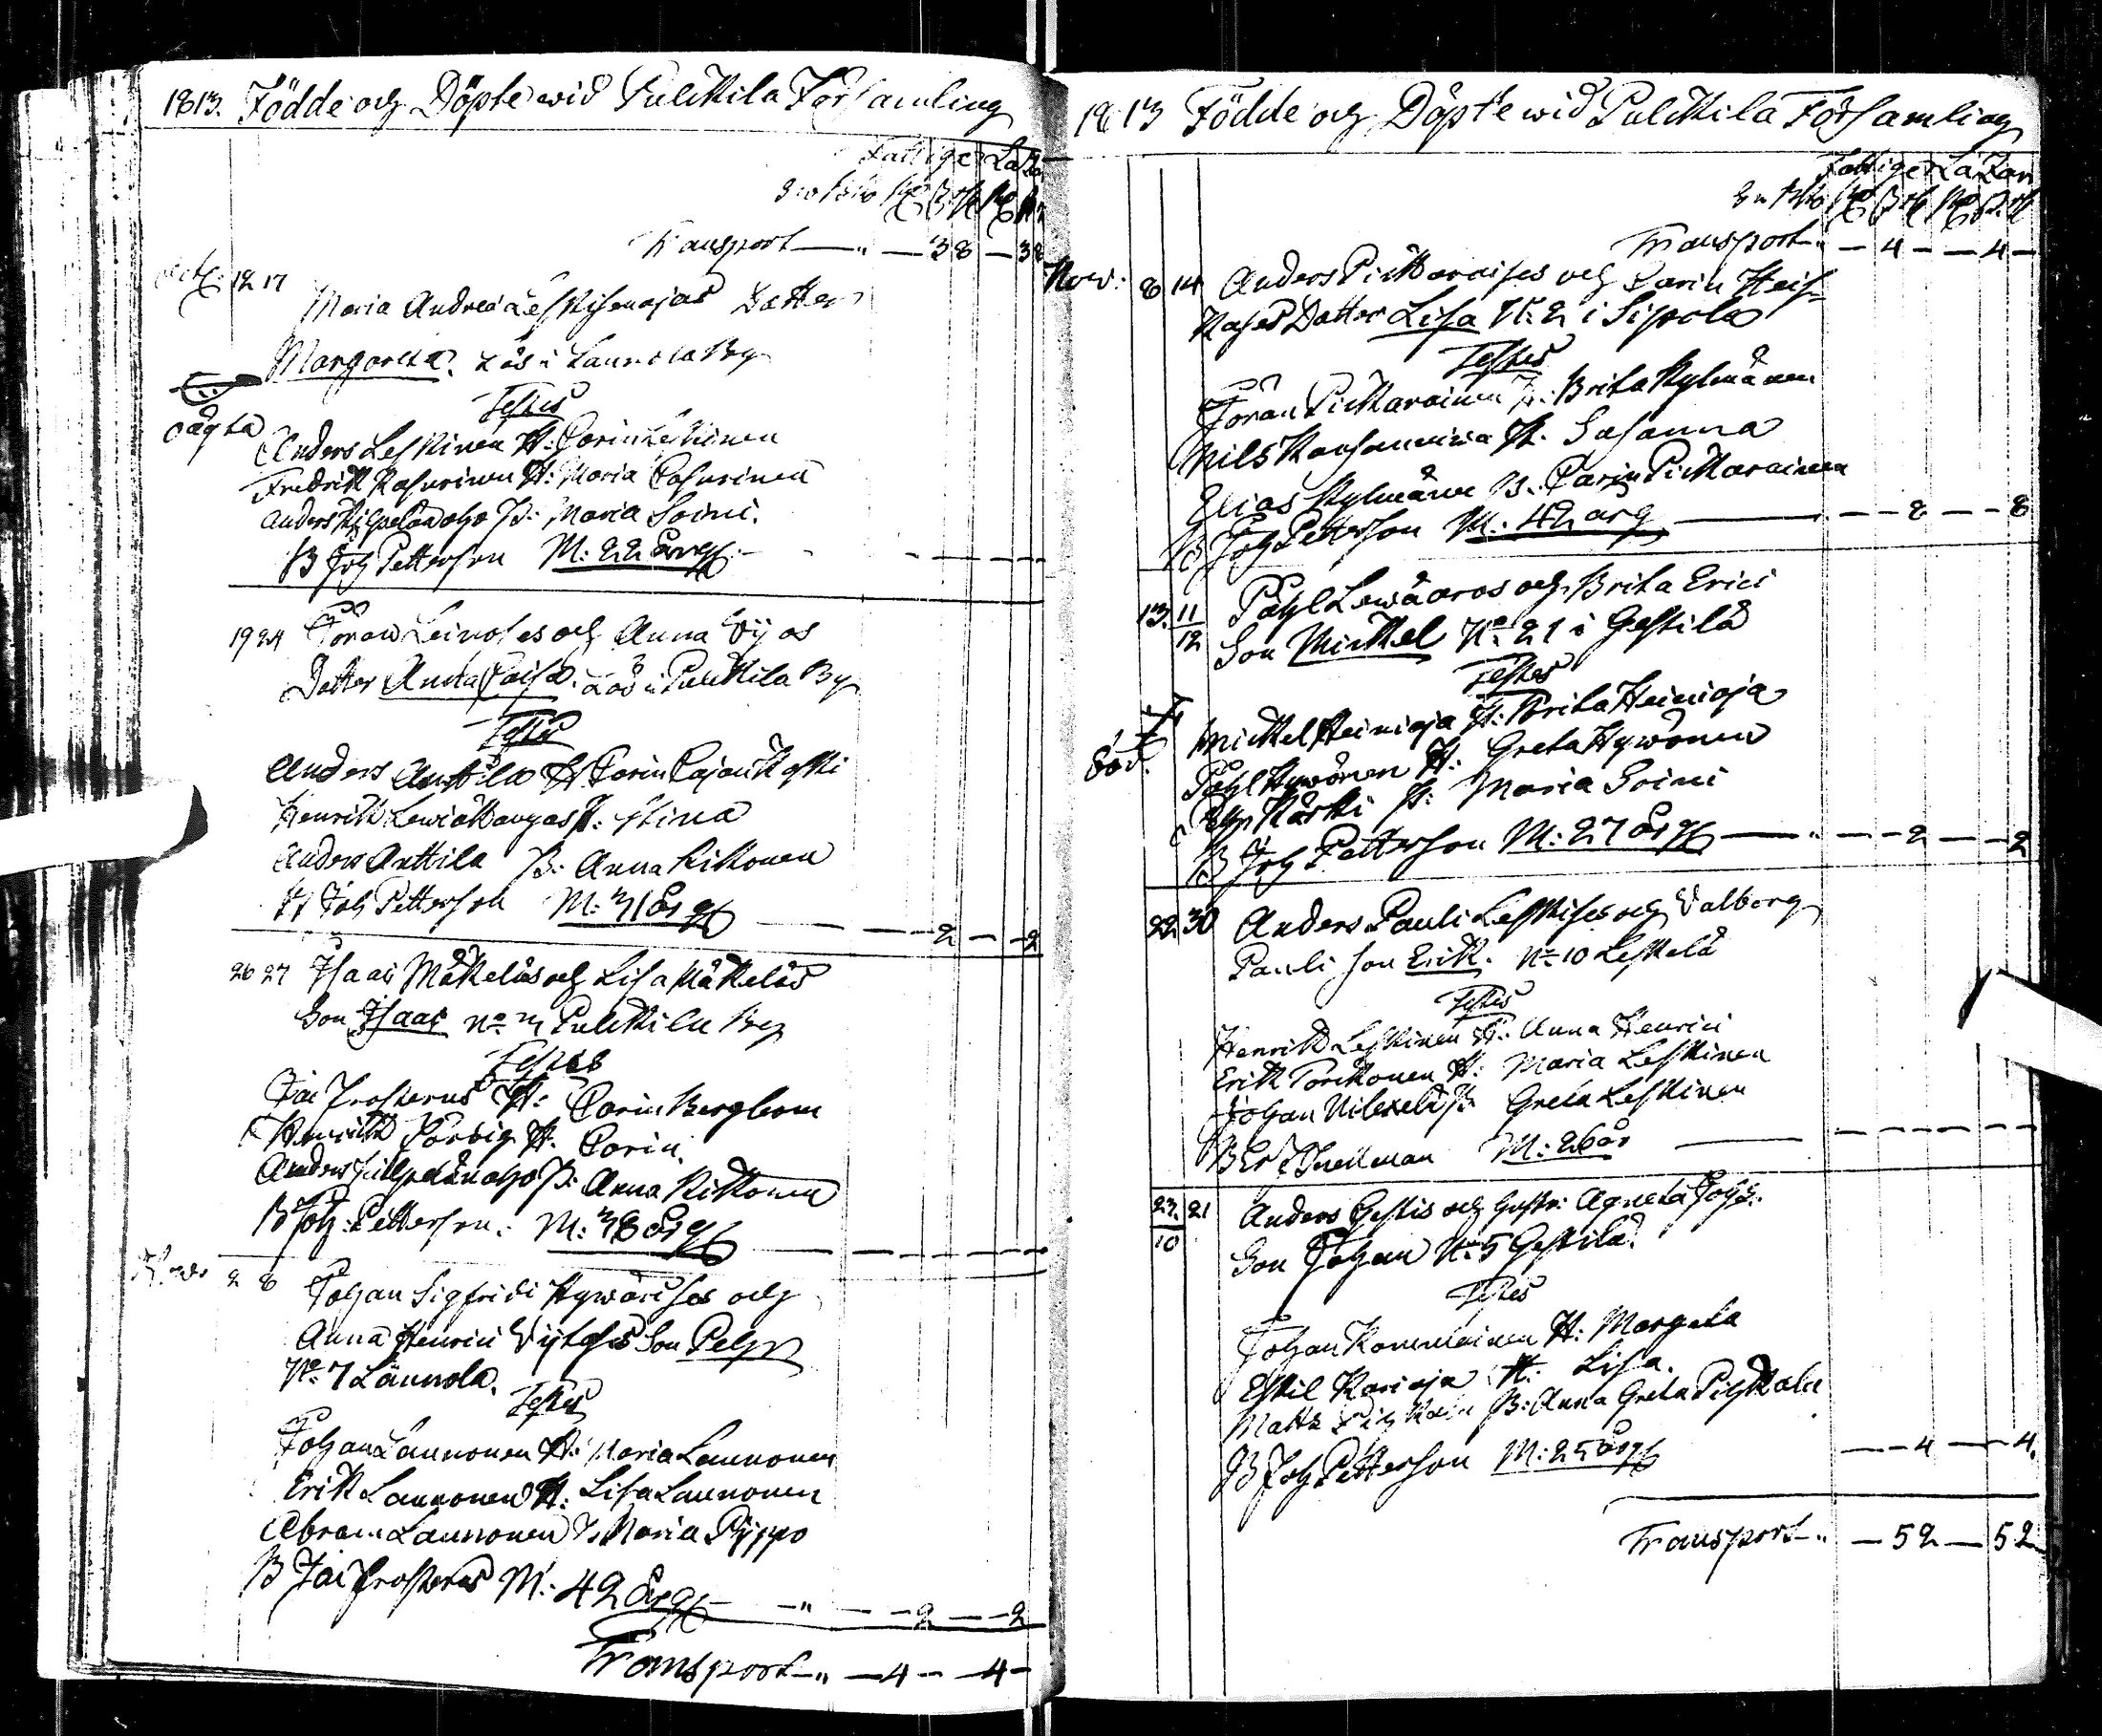 1813. Födde och Döpte wid Pulkkila Församling
Fattige Lazar
Transport — " — 38 — 38
Oct 12 17
Maria Andreæ Leskisenojas Dotter
Margareta. Lös i Launola By
Testes
oägta
Anders Leskinen H: Carin Leskinen
Fredrik Kasurinen H: Maria Casurinen
Anders Kilpelänaho P: Maria Soini.
B Joh Petterson M: 22 årg
19 24 Jöran Leinoses och Anna
Dotter Anna Caisa. Lös i Pulkkila By
Testes
Anders Anttila H: Carin Cajankoski
Henrik Lewiäkangas H: Stina
Anders Anttila P: Anna Rikkonen
B Joh Petterson M: 31 årg — 2 — 2
26 27 Isaac Mäkeläs och Lisa Mäkeläs
Son Isaac No 3 Pulkkila By
Testes
Jac Frosterus H: Carin Bergbom
Henrik H: Carin.
Anders Killpelänaho P: Anna Rikkonen
B Joh: Petterson: M: 38 årg
2 8 Johan Sigfridi Hywärises och
Anna Henrici Son Pehr
No 7 Lännola.
Testes
Johan Launonen H: Maria Launonen
Erik Launonen H: Lisa Launonen
Abram Launonen P: Maria Pyppo
B Jac Frosterus M: 42 Årg — " — 2 — 2
Transport — " — 4 — 4 —
1813 Födde och Döpte wid Pulkkila Församling
Fattige Lazar
Transport " — 4 — 4 —
Now: 8 14 Anders Pickaraises och Carin Heis-
kases Dotter Lisa No: 2 i Sipola
Testes
Jöran Pickarainen H: Brita Kylmänen
Nils H: Susanna
Elias Kylmänen P: Carin Pickarainen
B Joh Petterson M: 42 arg — 8 — 8
13. 11/12 Påhl Lewäaros och Brita Erici
Son Mickel No 21 i Gestilä
Testes
Mickel Heinioja H: Brita Heinioja
Påhl Hywönen H: Greta Hywönen
Pehr Kärki P: Maria Soini
B Joh Petterson M: 27 årg — " — 2 — 2
22 30 Anders Pauli Leskises och Walborg
Pauli son Erik. No 10 Leskelä
Testes
Henrik Leskinen H: Anna Henrici
Erik Torikonen H: Maria Leskinen
Johan P: Greta Leskinen
B Er Snellman M: 26 år
23. 21/10 Anders Gestis och hustr: Agneta Johs:
Son Johan No 5 Gestilä.
Testes
Johan Kommulainen H: Margeta
Eskil Karioja H: Lisa.
Matts Pihkala P: Anna Greta Pihkala
B Joh Petterson M: 25 årg — 4 — 4.
Transport " — 52 — 52